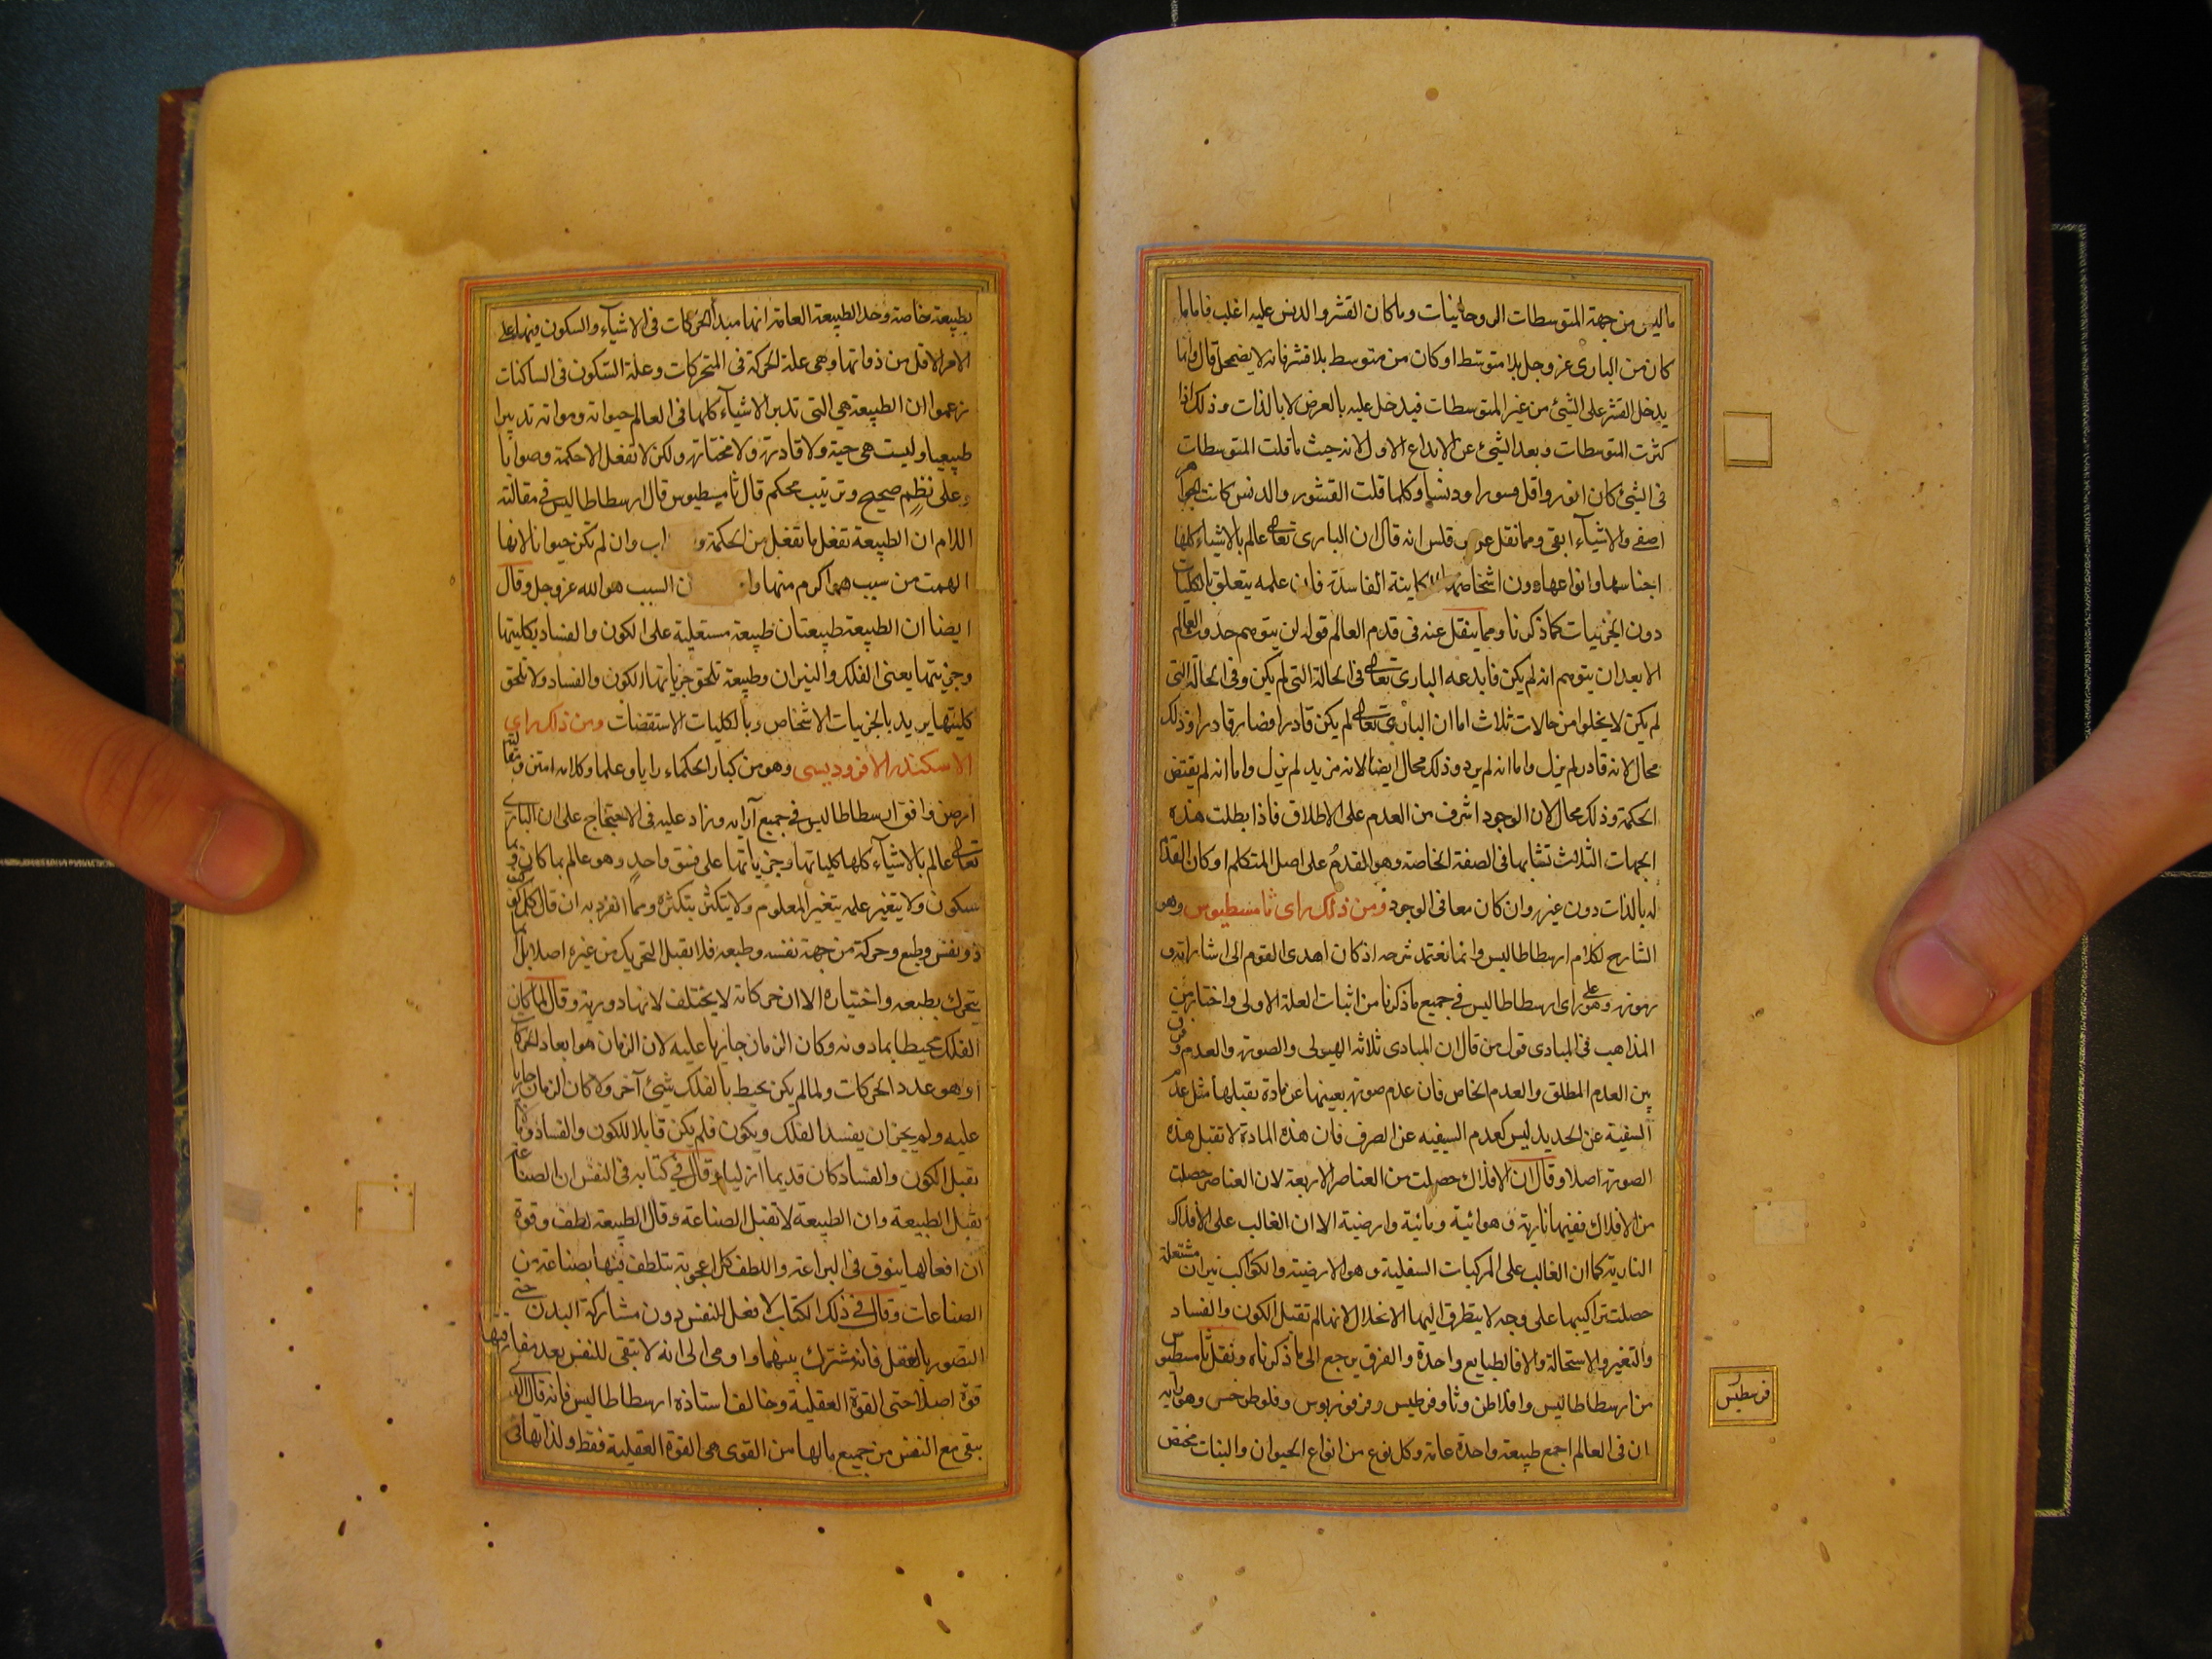 ما ليس من جهة المتوسطات الروحانيات وما كان القشر والدنس عليه اغلب فاما ما
كان من البارى عز وجل بلا متوسط او كان من متوسط بلا قشر فانه لا يضمحل قال وانما
يدخل القشر على الشيئ من غير المتوسطات فيدخل عليه بالعرض لا بالذات وذلك اذا
كثرت المتوسطات وبعد الشيئ عن الابداع الاول لانه حيث ما قلت المتوسطات
فى الشيئ كان انور واقل قسورا ودنسا وكلما قلت القشور والدنس كانت الجواهر
اصفى والاشياء ابقى ومما نقل عن قلس انه قال ان البارى تعالى عالم بالاشياء كلها
اجناسها وانواعها دون اشخاصها الكاينة الفاسدة فان علمه يتعلق بالكليات
دون الجزئيات كما ذكرنا ومما ينقل عنه فى قدم العالم قوله لن يتوهم حدوث العالم
الا بعد ان يتوهم انه لم يكن فابدعه البارى تعالى فى الحالة التى لم يكن وفى الحالة التى
لم يكن لا يخلوا من حالات ثلاث اما ان البارى تعالى لم يكن قادرا فصار قادرا وذلك
محال لانه قادر لم يزل واما انه لم يرد وذلك محال ايضا لانه مريد لم يزل واما انه لم يقتض
الحكمة وذلك محال لان الوجود اشرف من العدم على الاطلاق فاذا بطلت هذه
الجهات الثلاث تشابها فى الصفة الخاصة وهو القدم على اصل المتكلم او كان القدم
له بالذات دون غيره وان كان معا فى الوجود ومن ذلك راى ثامسطيوس وهو
الشارح لكلام ارسطاطاليس وانما نعتمد شرحه اذ كان اهدى القوم الى اشاراته و
رموزه وهو على راى ارسطاطاليس فى جميع ما ذكرنا من اثبات العلة الاولى واختار من
المذاهب فى المبادى قول من قال ان المبادى ثلاثة الهيولى والصورة والعدم وفرق
بين العدم المطلق والعدم الخاص فان عدم صورة بعينها عن مادة يقبلها مثل عدم
السفية عن الحديد ليس كعدم السيفيه عن الصرف فان هذه المادة لا تقبل هذه
الصورة اصلا وقال ان الافلاك حصلت من العناصر الاربعة لان العناصر حصلت
من الافلاك ففيها نارية و هوائية ومائية وارضية الا ان الغالب على الافلاك
النارية كما ان الغالب على المركبات السفلية هو الارضية والكواكب نيران مشتعلة
حصلت تراكيبها على وجه لا يتطرق اليها الانحلال لانها لم تقبل الكون والفساد
والتغير والاستحالة والا فالطبايع واحدة والفرق يرجع الى ما ذكرناه ونقل ثامسطيوس
من ارسطاطاليس وافلاطن وثاوفرطيس وفرفوريوس وفلوطرخس وهو رايه
ان فى العالم اجمع طبيعة واحدة عامة وكل نوع من انواع الحيوان والنبات مختص
فرسطيس
بطبيعة خاصة وحد الطبيعة العامة انها مبدأ الحركات فى الاشياء والسكون فيها على
الامر الاول من ذواتها وهى علة الحركة فى المتحركات وعلة السكون فى الساكنات
زعموا ان الطبيعة هى التى تدبر الاشياء كلها فى العالم حيوانه ومواته تدبيرا
طبيعيا وليست هى حية ولا قادرة ولا مختارة ولكن لا تفعل الا حكمة وصوابا
وعلى نظم صحيح وترتيب محكم قال ثامسطيوس قال ارسطاطاليس فى مقالته
اللام ان الطبيعة تفعل ما تفعل من الحكمة و اب وان لم تكن حيوانا لانها
الهمت من سبب هو اكرم منها وا ن السبب هو الله عز وجل وقال
ايضا ان الطبيعة طبيعتان طبيعة مستعلية على الكون والفساد بكليتها
وجزيتها يعنى الفلك والنيران وطبيعة تلحق جزياتها الكون والفساد ولا تلحق
كليتها يريد بالجزيات الاشخاص وبالكليات الاستقضات ومن ذلك راى
الاسكندر الافروديسى وهو من كبار الحكماء رايا وعلما وكلامه امتن ومقالته
ارصن وافق ارسطاطاليس فى جميع آرايه وزاد عليه فى الاحتجاج على ان البارى
تعالى عالم بالاشياء كلها كلياتها وجزياتها على نسق واحد وهو عالم بما كان وبما
سيكون ولا يتغير علمه بتغير المعلوم ولا يتكثر بتكثره ومما انفرد به ان قال كل كوكب
ذو نفس وطبع وحركة من جهة نفسه وطبعه فلا يقبل التحريك من غيره اصلا بل انما
يتحرك بطبعه واختياره الا ان حركاته لا يختلف لانها دورية وقال لما كان
الفلك محيطا بما دونه وكان الزمان جاريا عليه لان الزمان هو ابعاد الحركات
او هو عدد الحركات ولما لم يكن يحيط بالفلك شيئ آخر ولا كان الزمان جاريا
عليه ولم يجز ان يفسد الفلك ويكون فلم يكن قابلا للكون والفساد وما لم
يقبل الكون والفساد كان قديما ازليا وقال فى كتابه فى النفس ان الصناعة
تقبل الطبيعة وان الطبيعة لا تقبل الصناعة وقال الطبيعة لطف وقوة
ان افعالها يفوق فى البراعة واللطف كل اعجوبة تتلطف فيها بصناعة من
الصناعات وقال فى ذلك الكتاب لا فعل للنفس دون مشاركة البدن حتى
التصور بالعقل فانه مشترك بينهما واومى الى انه لا تبقى للنفس بعد مفارقتها
قوة اصلا حتى القوة العقلية وخالف استاذه ارسطاطاليس فانه قال الذى
يبقى مع النفس من جميع مالها من القوى هى القوة العقلية فقط ولذاتها فى